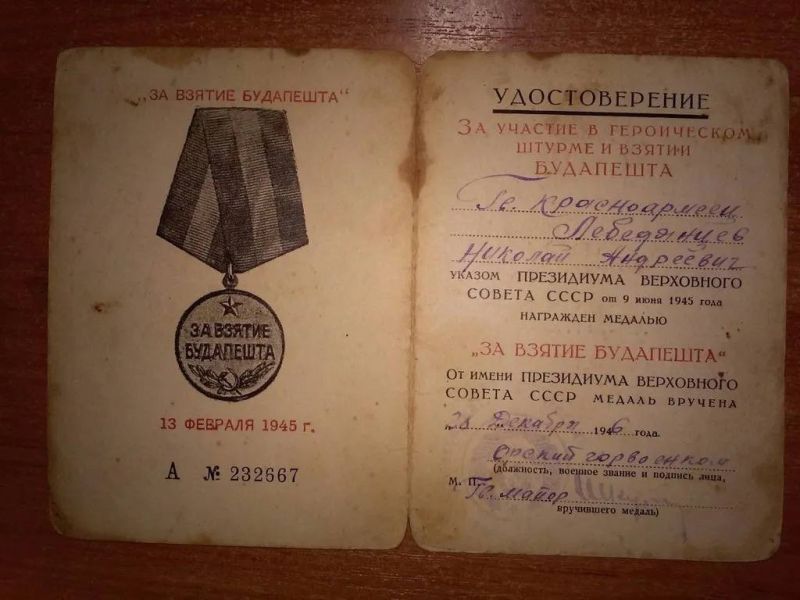 „ЗА ВЗЯТИЕ БУДАПЕШТА“
ЗА ВЗЯТИЕ
БУДАПЕШТА
13 ФЕВРАЛЯ 1945 г.
А № 232667
УДОСТОВЕРЕНИЕ
ЗА УЧАСТИЕ В ГЕРОИЧЕСКОМ
ШТУРМЕ И ВЗЯТИИ
БУДАПЕШТА
Гв. красноармеец
Лебедянцев
Николай Андреевич
УКАЗОМ ПРЕЗИДИУМА ВЕРХОВНОГО
СОВЕТА СССР от 9 июня 1945 года
НАГРАЖДЕН МЕДАЛЬЮ
„ЗА ВЗЯТИЕ БУДАПЕШТА“
От имени ПРЕЗИДИУМА ВЕРХОВНОГО
СОВЕТА СССР МЕДАЛЬ ВРУЧЕНА
„28 декабря 1946 года.
Орский горвоенком
(должность, военное звание и подпись лица,
М. П. Гв. майор
вручившего медаль)